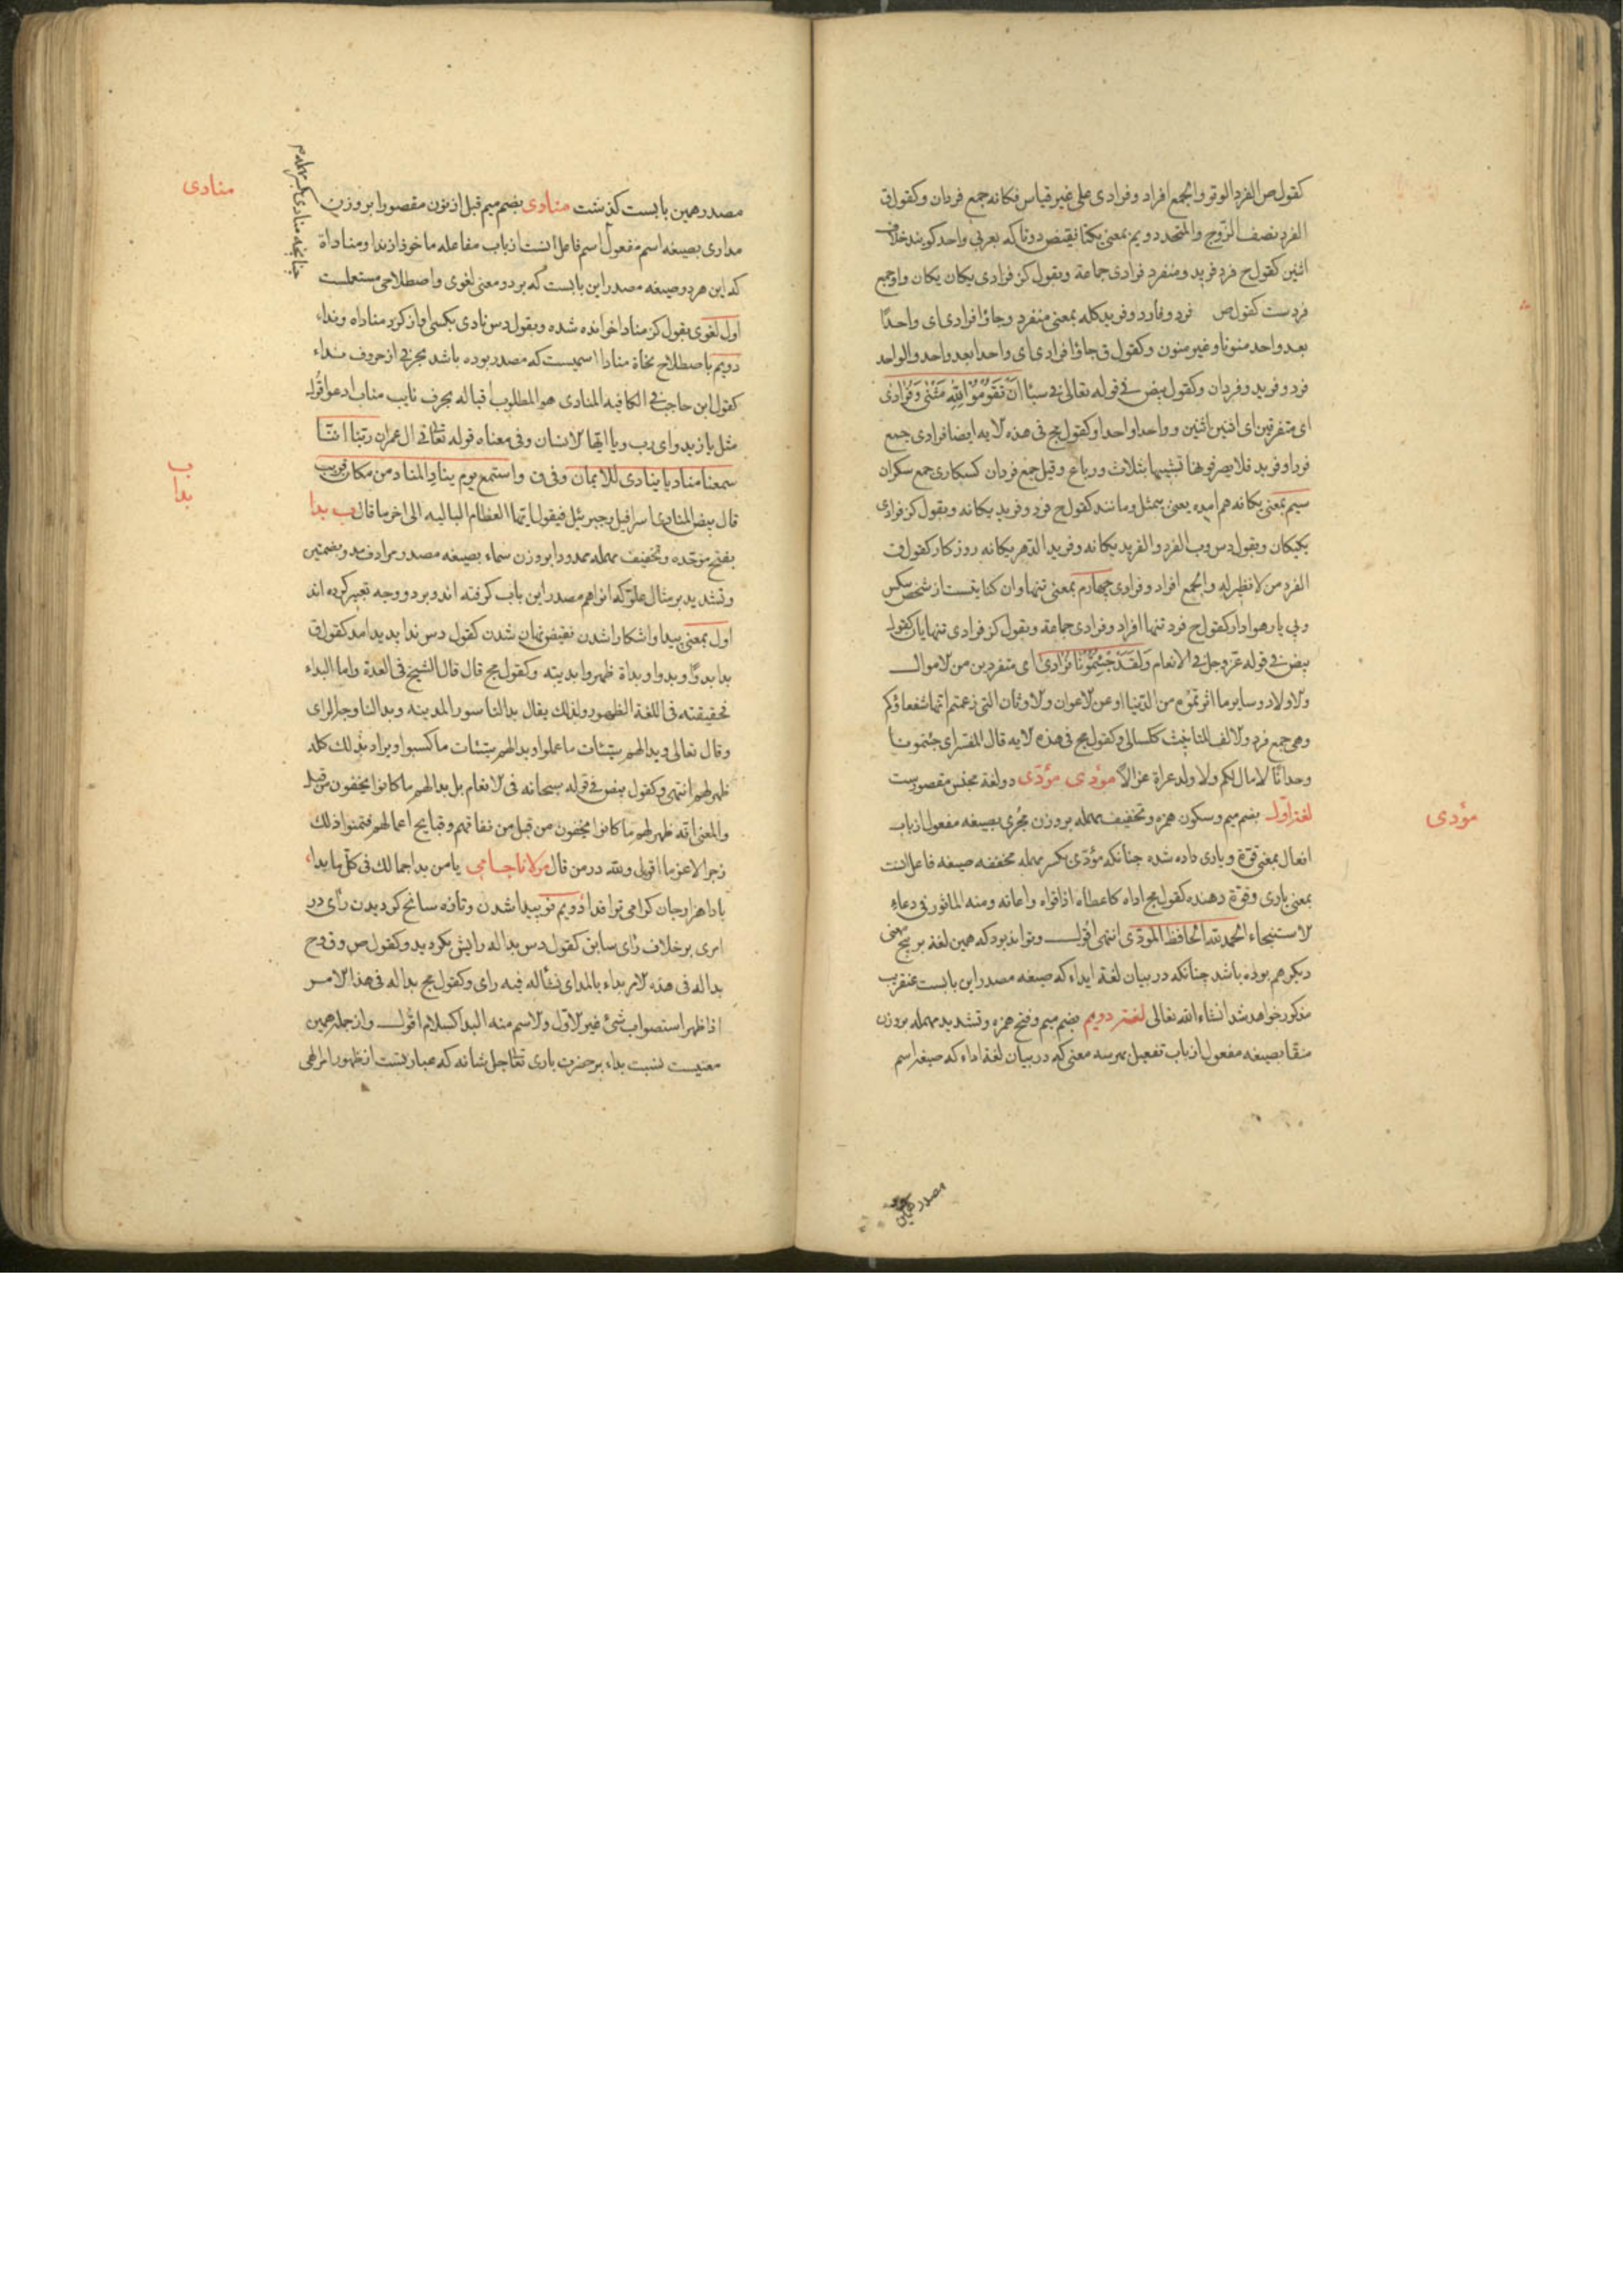 كقول ص الفرد الوتر والجمع افراد وفرادى على غير قياس فكانه جمع فردان وكقول ق
الفرد نصف الزوج والمتحد دويم بمعنى يكتا نقيض دوتا كه بعربى واحد كويند خلاف
اثنين كقول ح فرد فريد ومنفرد فرادى جماعة وبقول كز فرادى يكان يكان واو جمع
فردست كقول ص فرد وفارد وفريد كله بمعنى منفرد وجاؤا فرادى اى واحدًا
بعد واحد منونا وغير منون وكقول ق جاؤا فرادى اى واحدا بعد واحد والواحد
فرد وفريد وفردان وكقول بيض فى قوله تعالى فى سبأ اَنْ تَقُومُوْا لِلّٰهِ مَثْنٰى وَفُرَادٰى
اى متفرقين اى اثنين اثنين وواحدا واحدا وكقول مج فى هذه لايه ايضا فرادى جمع
فرد او فريد فلا يصرفونها تشبيها بثلاث ورباع وقيل جمع فردان كسكارى جمع سكران
سيم بمعنى يكانه هم امده يعنى بيمثل ومانند كقول ح فرد وفريد يكانه وبقول كز فرادى
يكيكان وبقول دس وب الفرد والفريد يكانه وفريد الدهر يكانه روزكار كقول ق
الفرد من لا نظير له والجمع افراد وفرادى جهارم بمعنى تنها وان كنايتست از شخص بيكس
وبى يار هوادار كقول ح فرد تنها افراد وفرادى جماعة وبقول كز فرادى تنهايان كقول
بيض فى قوله عز وجل فى الانعام وَلَقَدْ جِئْتُمُوْنَا فُرَادٰى اى متفردين من لاموال
ولاولاد وساير ما اثرتموه من الدنيا او عن لاعوان ولاوثان التى زعمتم انها شفعاؤكم
وهى جمع فرد ولالف للتانيث ككسالى وكقول مج فى هذه لايه قال المفسر اى جئتمونا
وحدانًا لا مال لكم ولا ولد عراة عزلاً مؤدى مؤدّى دو لغة مجنس مقصورست
لغت اول بضم ميم وسكون همزه وتخفيف مهمله بر وزن مُجرى بصيغه مفعول از باب
افعال بمعنى قوة ويارى داده شده چنانكه مؤدى بكسر مهمله مخففه صيغه فاعل انست
بمعنى يارى وقوة دهنده كقول مج اداه كاعطاه اذا قواه واعانه ومنه الماثور فى دعاء
لاستنجاء الحمد لله الحافظ المؤدى انتهى اقول وتواند بود كه همين لغة بر پنج معنى
ديكر هم بوده باشد چنانكه در بيان لغة ايداء كه صيغه مصدر اين بابست عنقريب
مذكور خواهد شد انشاء الله تعالى لغت دويم بضم ميم وفتح همزه وتشديد مهمله بر وزن
منقا بصيغه مفعول از باب تفعيل بهر سه معنى كه در بيان لغة اداء كه صيغه اسم
مؤدى
مصدر همين
مصدر همين بابست كذشت منادى بضم ميم قبل از نون مقصورا بر وزن
مدارى بصيغه اسم مفعول اسم فاعل انست از باب مفاعله ماخوذ از ندا ومناداة
كه اين هر دو صيغه مصدر اين بابست كه بر دو معنى لغوى واصطلاحى مستعملست
اول لغوى بقول كز منادا خوانده شده وبقول دس نادى بكسى اواز كرد مناداه ونداء
دويم باصطلاح نحاة منادا اسميست كه مصدر بوده باشد بحرفى از حروف نداء
كقول ابن حاجب فى الكافيه المنادى هو المطلوب اقباله بحرف نايب مناب ادعو اقول
مثل يا زيد واى رب ويا ايها لانسان وفى معناه قوله تعالى فى ال عمران ربنا اننا
سمعنا مناديا ينادى للايمان وفى ق واستمع يوم يناد المناد من مكان قريب
قال بيض المنادى اسرافيل او جبرئيل فيقول ايتها العظام الباليه الى اخر ما قال ب بدا
بفتح موحده وتخفيف مهمله ممدودا بر وزن سماء بصيغه مصدر مرادف بدو بضمتين
وتشديد بر مثال علو كه انرا هم مصدر اين باب كرفته اند وبر دو وجه تعبير كرده اند
اول بمعنى پيدا واشكارا شدن نقيض نهان شدن كقول دس ندا بديد امد كقول ق
بدا بدوًا وبدوا وبداة ظهر وابديته وكقول مج قال قال الشيخ فى العدة واما البداء
فحقيقته فى اللغة الظهور ولذلك يقال بدا لنا سور المدينه وبدا لنا وجه الراى
وقال تعالى وبدا لهم سيئات ما عملوا وبدا لهم سيئات ما كسبوا ويراد بذلك كله
ظهر لهم انتهى وكقول بيض فى قوله سبحانه فى لانعام بل بدا لهم ما كانوا يخفون من قبل
والمعنى انه ظهر لهم ما كانوا يخفون من قبل من نفاقهم وقبايح اعمالهم فتمنوا ذلك
زجرا لا عزما اقول ولله در من قال مولانا جامى يا من بدا جمالك فى كل ما بدا
بادا هزار جان كرامى ترا فدا دويم نو پيدا شدن وتازه سانح كرديدن رأى در
امرى بر خلاف رأى سابق كقول دس بدا له رايش بكرديد وكقول ص وق وح
بدا له فى هذه لامر بداء بالمد اى نشأ له فيه راى وكقول مج بدا له فى هذا لامر
اذا ظهر استصواب شئ غير لاول ولاسم منه البدا كسلام اقول واز جمله همين
معنيست نسبت بداء بر حضرت بارى تعالى جل شانه كه عبارتست از ظهور امر الهى
منادى
چنانچه منادى بكسر مهمله
ب
بدا